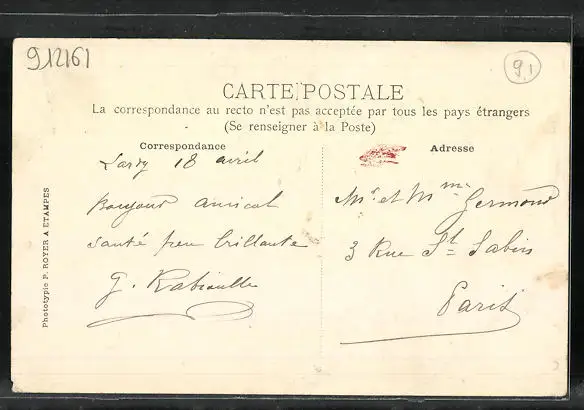 912161
9,1
CARTE POSTALE
La correspondance au recto n'est pas acceptée par tous les pays étrangers
(Se renseigner à la Poste)
Correspondance
Lardy 18 avril
Bonjour amical
santé peu brillante
G. Rabioulle
Adresse
Mr et Mme Germond
3 Rue St Sabin
Paris
Phototypie P. ROYER A ETAMPES